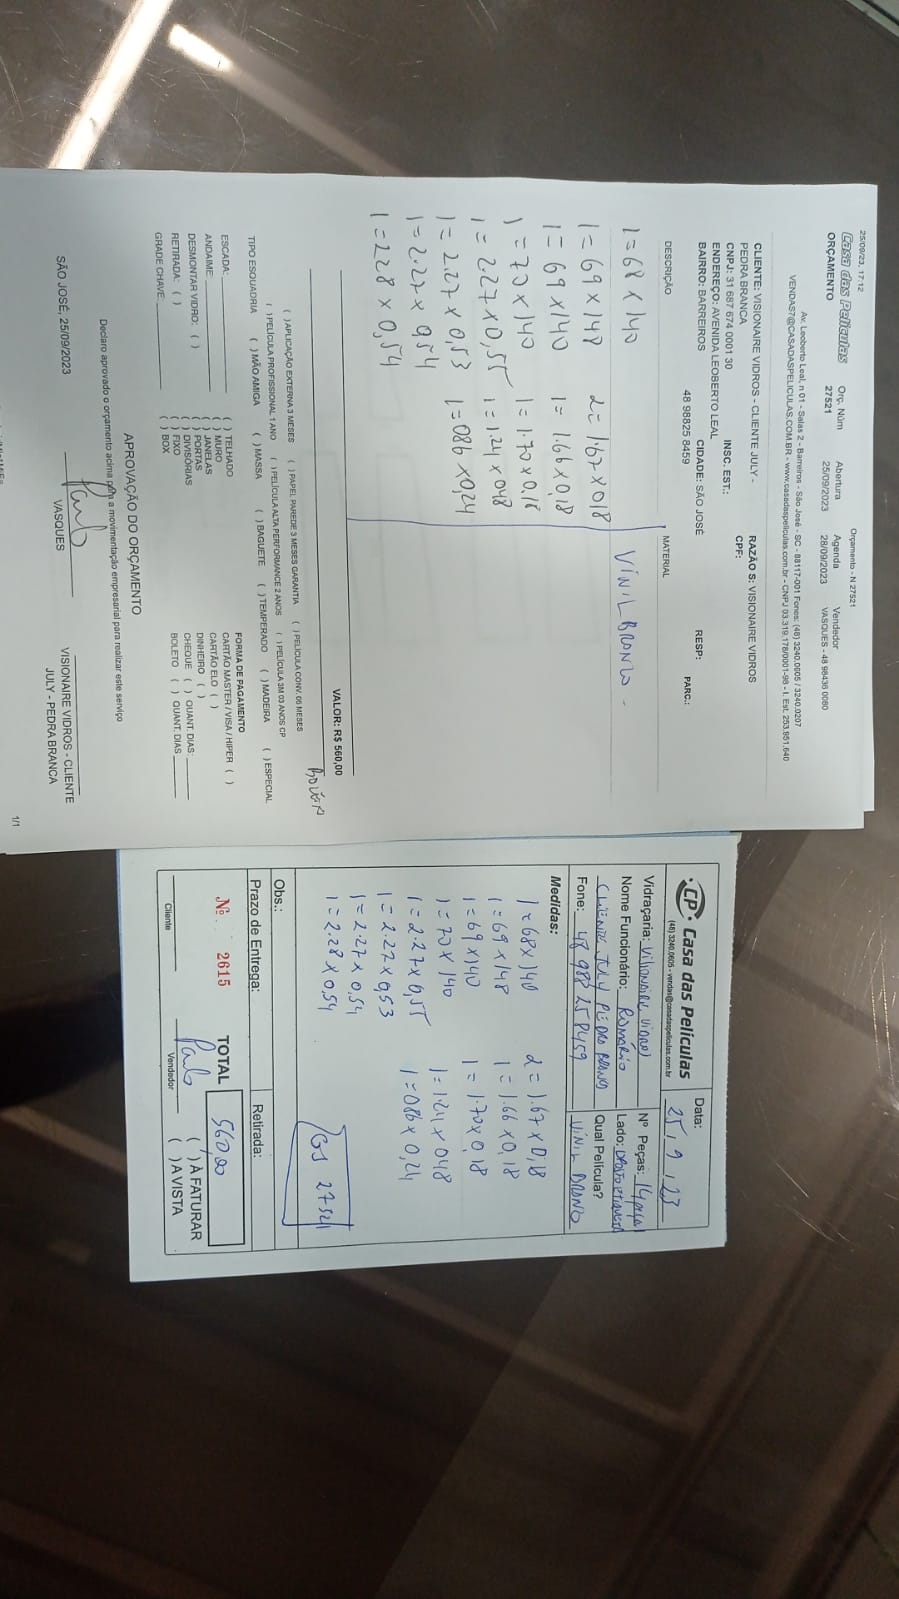 25/09/23, 17:12
Orçamento - N 27521
Casa das Películas
ORÇAMENTO
Orç. Núm
27521
Abertura
25/09/2023
Agenda
28/09/2023
Vendedor
VASQUES - 48 98436 0080
Av. Leoberto Leal, n 01 - Salas 2 - Barreiros - São José - SC - 88117-001 Fones: (48) 3240.0605 / 3240.0207
VENDAS7@CASADASPELICULAS.COM.BR - www.casadaspeliculas.com.br - CNPJ 03.319.178/0001-98 - I. Est. 253.951.640
CLIENTE: VISIONAIRE VIDROS - CLIENTE JULY -
PEDRA BRANCA
RAZÃO S: VISIONAIRE VIDROS
CNPJ: 31 687 674 0001 30
INSC. EST.:
CPF:
ENDEREÇO: AVENIDA LEOBERTO LEAL
BAIRRO: BARREIROS
CIDADE: SÃO JOSÉ
RESP:
48 98825 8459
PARC.:
DESCRIÇÃO
MATERIAL
1=68 x 140
VINIL BRONZO -
1=69 x 148
2=1.67 x 0,18
1=69 x 140
1=1.66 x 0,18
1=70 x 140
1=1.70 x 0,18
1=2.27 x 0,55
1=1.24 x 048
1=2.27 x 0,53
1=086 x 0,24
1=2.27 x 0,54
1=228 x 0,54
VALOR: R$ 560,00
BOLETO
( ) APLICAÇÃO EXTERNA 3 MESES ( ) PAPEL PAREDE 3 MESES GARANTIA ( ) PELÍCULA CONV. 06 MESES
( ) PELÍCULA PROFISSIONAL 1 ANO ( ) PELÍCULA ALTA PERFORMANCE 2 ANOS ( ) PELÍCULA 3M 03 ANOS CP
TIPO ESQUADRIA ( ) MÃO AMIGA ( ) MASSA ( ) BAGUETE ( ) TEMPERADO ( ) MADEIRA ( ) ESPECIAL
ESCADA:
ANDAIME:
DESMONTAR VIDRO: ( )
RETIRADA: ( )
GRADE CHAVE:
( ) TELHADO
( ) MURO
( ) JANELAS
( ) PORTAS
( ) DIVISÓRIAS
( ) FIXO
( ) BOX
FORMA DE PAGAMENTO
CARTÃO MASTER / VISA / HIPER ( )
CARTÃO ELO ( )
DINHEIRO ( )
CHEQUE ( ) QUANT. DIAS:
BOLETO ( ) QUANT. DIAS
APROVAÇÃO DO ORÇAMENTO
Declaro aprovado o orçamento acima para a movimentação empresarial para realizar este serviço
SÃO JOSÉ, 25/09/2023
VASQUES
VISIONAIRE VIDROS - CLIENTE
JULY - PEDRA BRANCA
1/1
CP Casa das Películas
(48) 3240.0605 - vendas@casadaspeliculas.com.br
Data:
25/9/23
Vidraçaria: Visionaire Vidros
Nº Peças: 14 peças
Nome Funcionário: Romário
Lado: oposto etiqueta
CLIENTE JULY PEDRA BRANCA
Qual Película?
Fone: 48 988 25 8459
VINIL BRONZO
Medidas:
1=68 x 140
2=1.67 x 0,18
1=69 x 148
1=1.66 x 0,18
1=69 x 140
1=1.70 x 0,18
1=70 x 140
1=1.24 x 048
1=2.27 x 0,55
1=086 x 0,24
1=2.27 x 0,53
1=2.27 x 0,54
1=2.28 x 0,54
27521
Obs.:
Prazo de Entrega:
Retirada:
Nº 2615
TOTAL
560,00
( ) À FATURAR
( ) À VISTA
Cliente
Vendedor